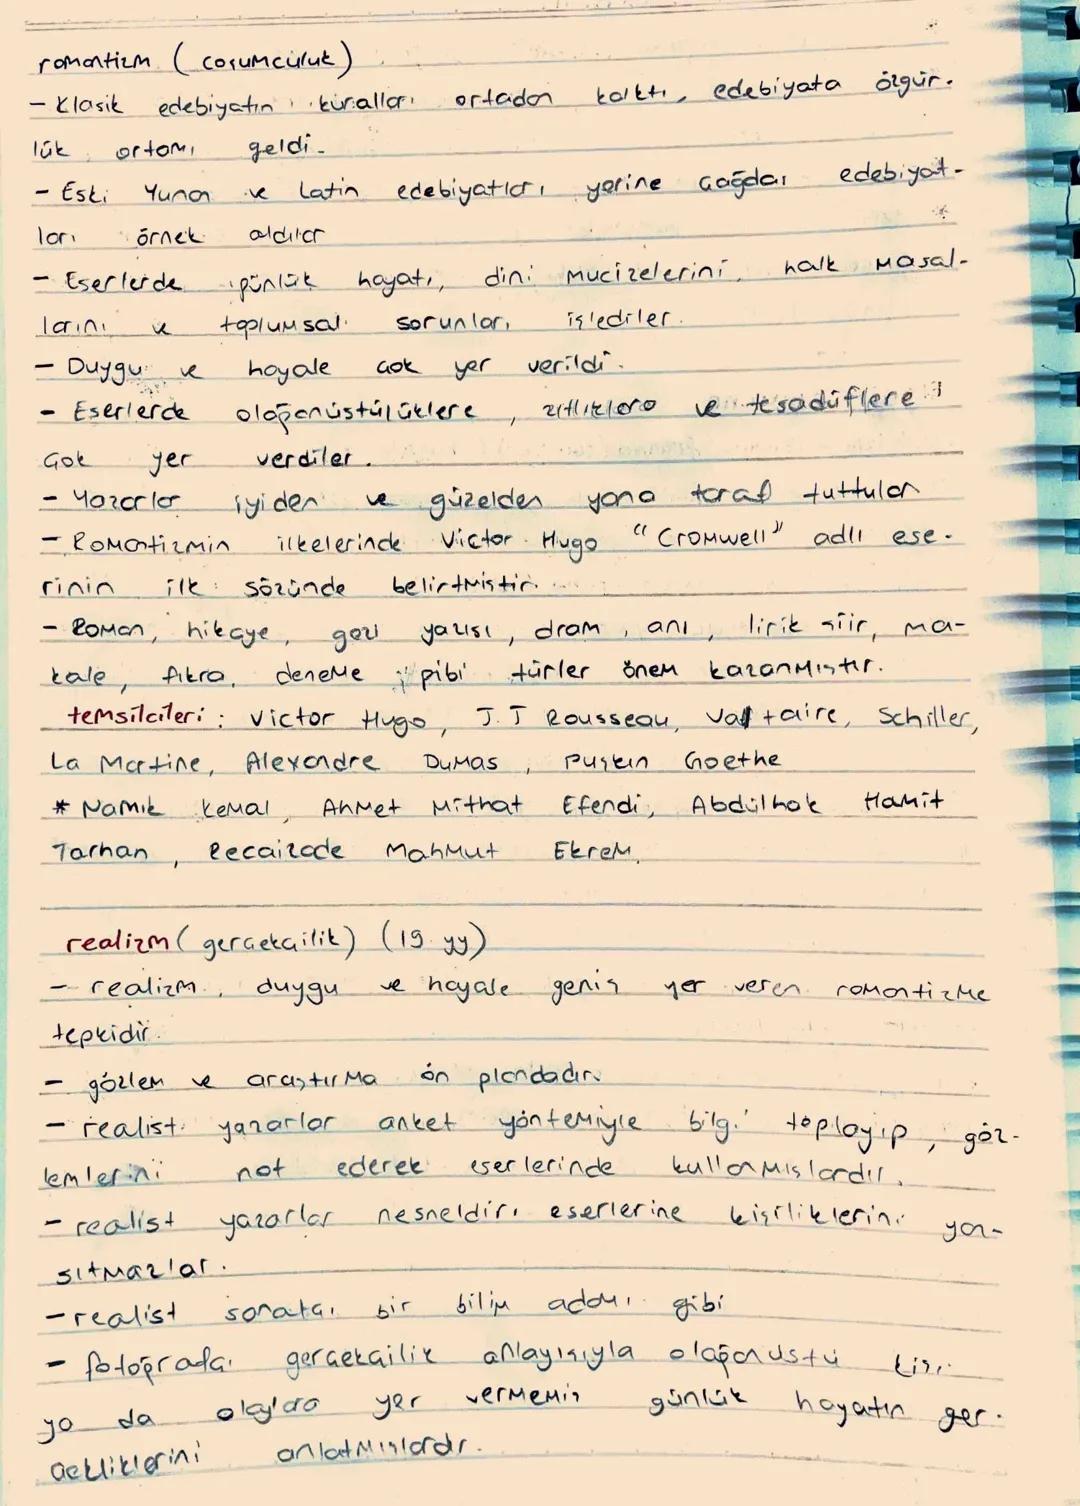 romantizm (coşumculuk)
- Klasik edebiyatın kuralları ortadan kalktı, edebiyata özgür-
lük ortamı geldi.
- Eski Yunan ve Latin edebiyatları yerine çağdaş edebiyat-
ları örnek aldılar
- Eserlerde günlük hayatı, dini mucizelerini, halk masal-
larını ve toplumsal sorunları işlediler.
- Duygu ve hayale çok yer verildi.
- Eserlerde olağanüstülüklere, zıtlıklara ve tesadüflere
çok yer verdiler.
- Yazarlar iyiden ve güzelden yana taraf tuttular
- Romantizmin ilkelerinde Victor Hugo "Cromwell" adlı ese-
rinin ilk sözünde belirtmiştir.
- Roman, hikaye, gezi yazısı, dram, anı, lirik şiir, ma-
kale, fıkra, deneme gibi türler önem kazanmıştır.
temsilcileri: Victor Hugo, J.J Rousseau, Valtaire, Schiller,
La Martine, Alexandre Dumas, Puşkin Goethe
* Namık Kemal, Ahmet Mithat Efendi, Abdülhak Hamit
Tarhan, Recaizade Mahmut Ekrem,
realizm (gerçekçilik) (19. yy)
- realizm, duygu ve hayale geniş yer veren romantizme
tepkidir.
- gözlem ve araştırma ön plandadır.
- realist yazarlar anket yöntemiyle bilgi toplayıp, göz-
lemlerini not ederek eserlerinde kullanmışlardır.
- realist yazarlar nesneldir, eserlerine kişiliklerini yan-
sıtmazlar.
- realist sanatçı bir bilim adamı gibi
- fotoğrafçı gerçekçilik anlayışıyla olağanüstü kişi
ya da olaylara yer vermemiş günlük hayatın ger-
çekliklerini anlatmışlardır.